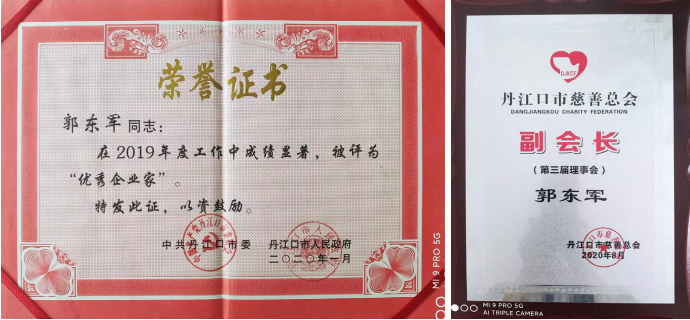 荣誉证书
郭东军同志：
在2019年度工作中成绩显著，被评为
“优秀企业家”。
特发此证，以资鼓励。
中共丹江口市委 丹江口市人民政府
二〇二〇年一月
MI 9 PRO 5G
DJKCF
丹江口市慈善总会
DANGJIANGKOU CHARITY FEDERATION
副会长
（第三届理事会）
郭东军
丹江口市慈善总会
2020年8月
MI 9 PRO 5G
AI TRIPLE CAMERA